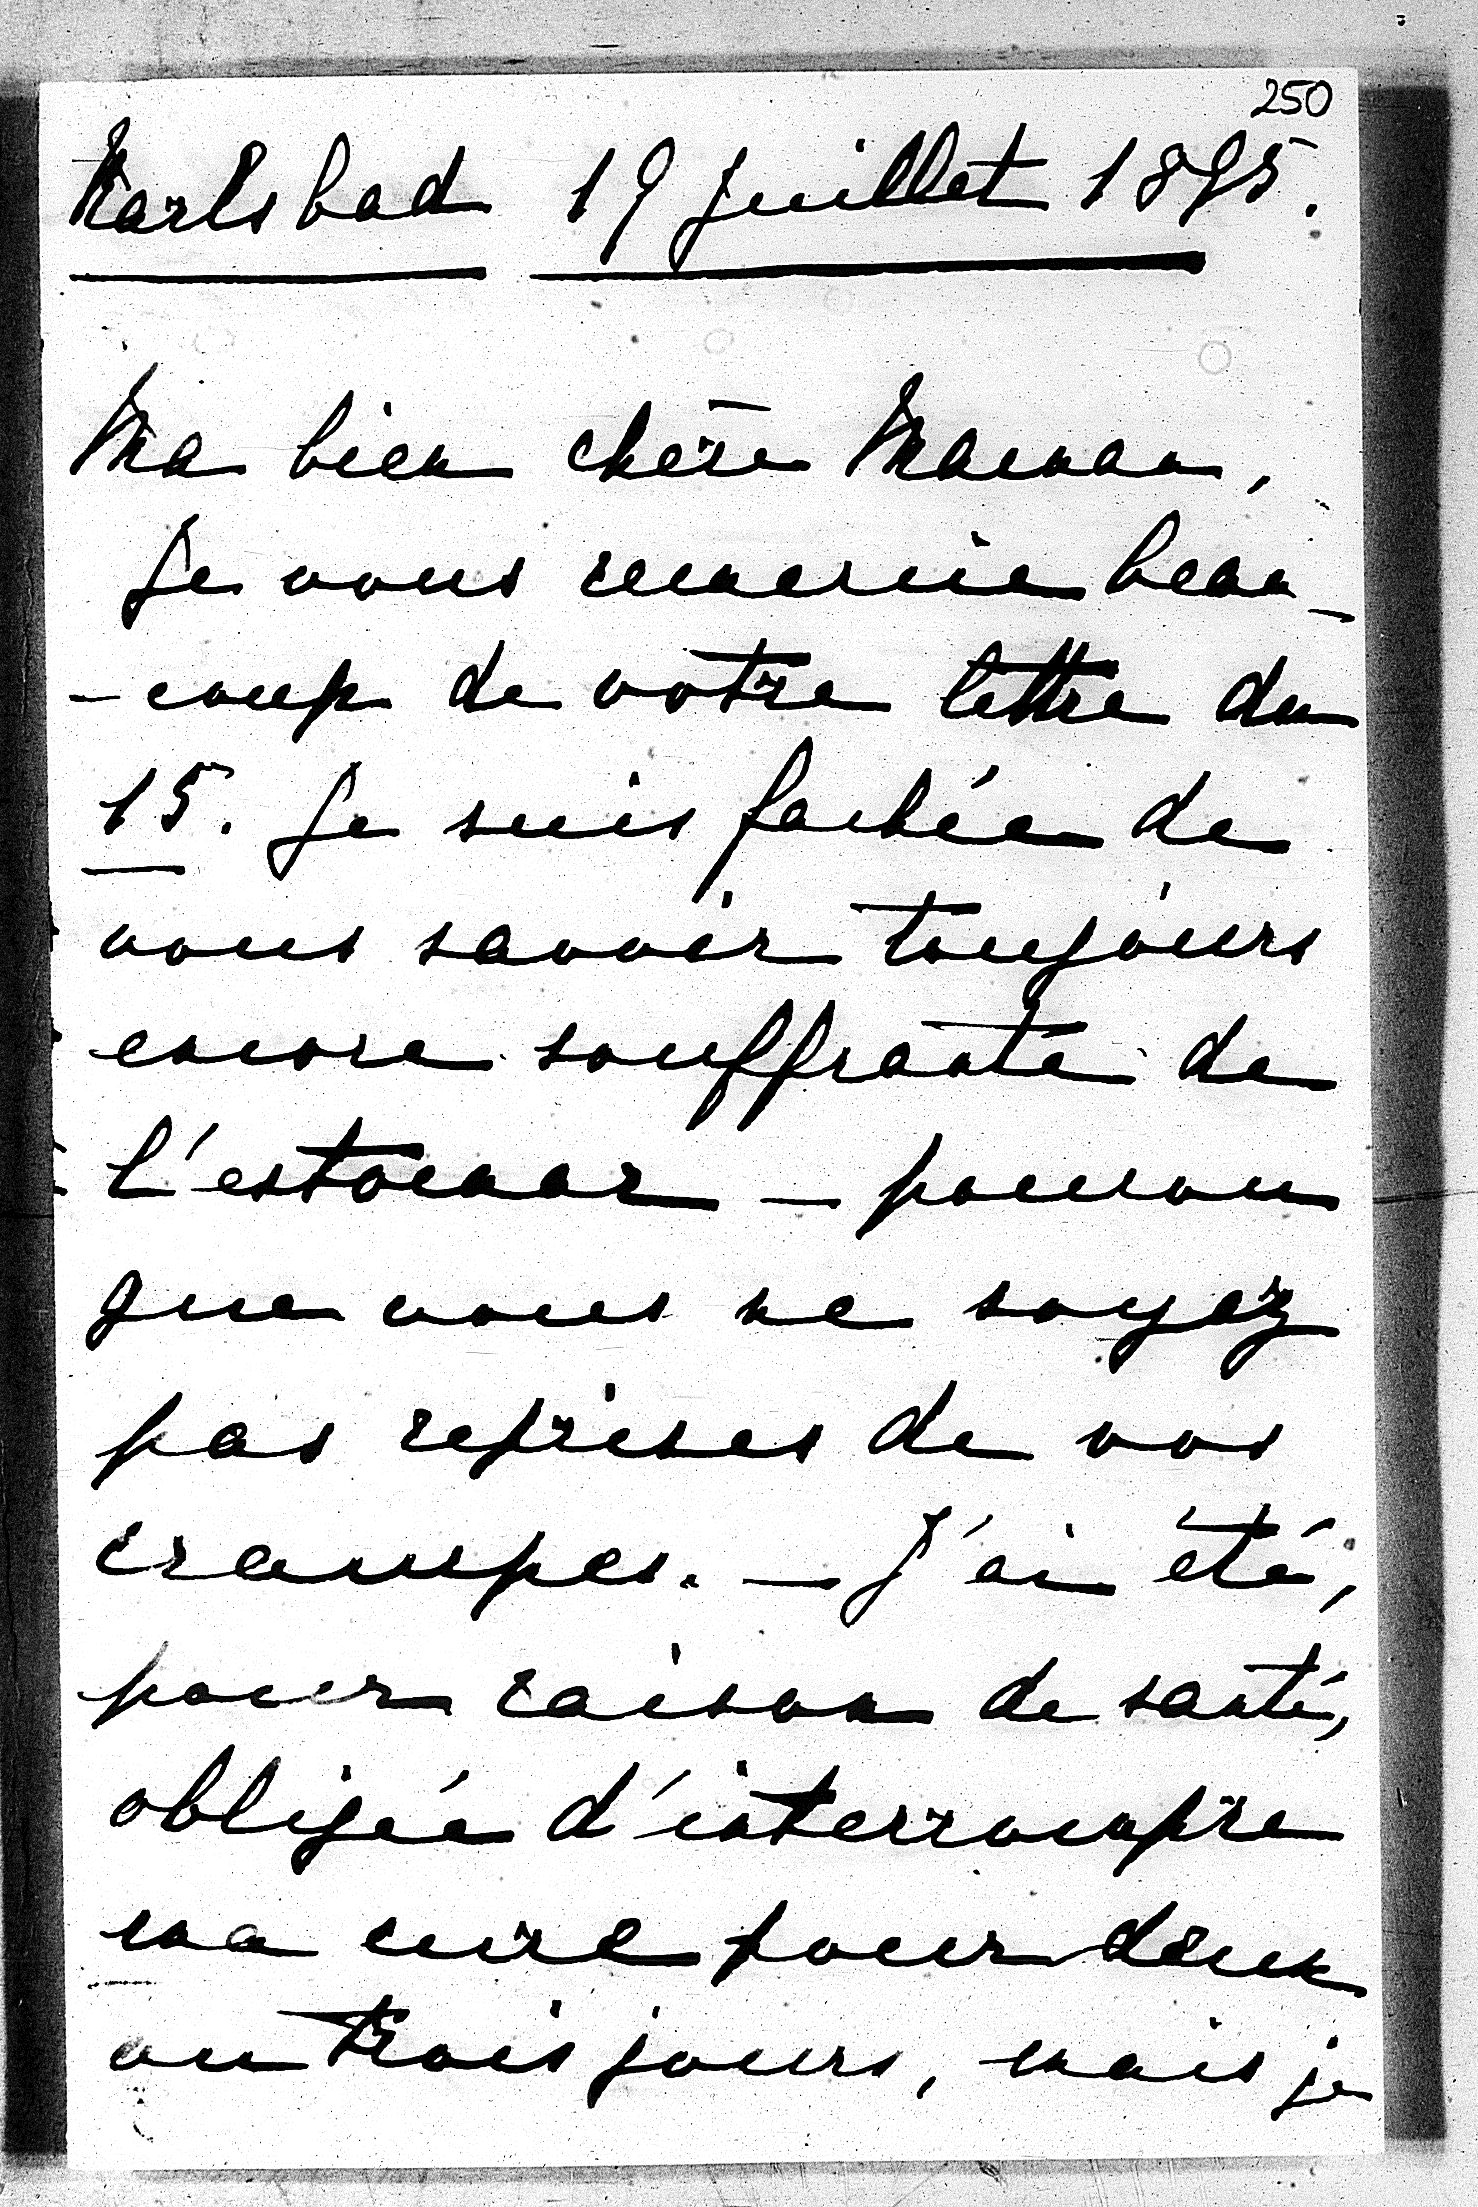 250
Karlsbad 19 juillet 1895.
Ma bien chère Maman,
Je vous remercie beau-
-coup de votre lettre du
15. Je suis fachée de
vous savoir toujours
encore souffrante de
l'estomac – pourvu
que vous ne soyez
pas reprises de vos
crampes. – J'ai été,
pour raison de santé,
obligée d'interrompre
ma cure pour deux
ou trois jours, mais je